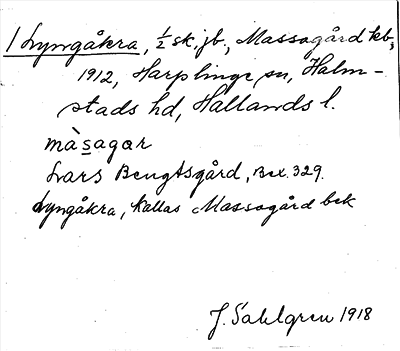 1 Lyngåkra, 1/2 sk. jb., Massagård kb,
1912, Harplinge sn, Halm-
stads hd, Hallands l.
mà̀sagar
Lars Bengtsgård, Bex. 329.
Lyngåkra, kallas Massagård bek
J. Sahlgren 1918